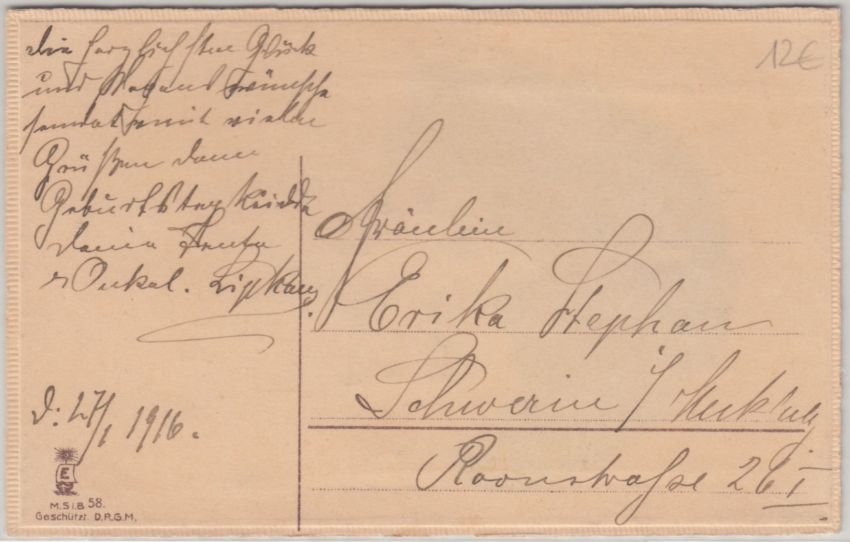 die herzlichsten Glück
und Segenswünsche
sendet mit vielen
Grüßen dem
Geburtstagskinde
deine Tante
u Onkel. Lipkau.
d: 27/1 1916.
M.S.i.B 58.
Geschützt D.R.G.M.
12€
Fräulein
Erika Stephan
Schwerin i/
Roonstraße 26 I